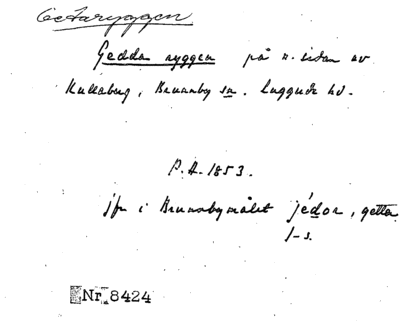 Getaryggen
Gedda ryggen på n. sidan av
Kullaberg, Brunnby sn. Luggude hd.
P.A. 1853.
jfr i Brunnbymålet jédor, getter
1-s.
Nr. 8424